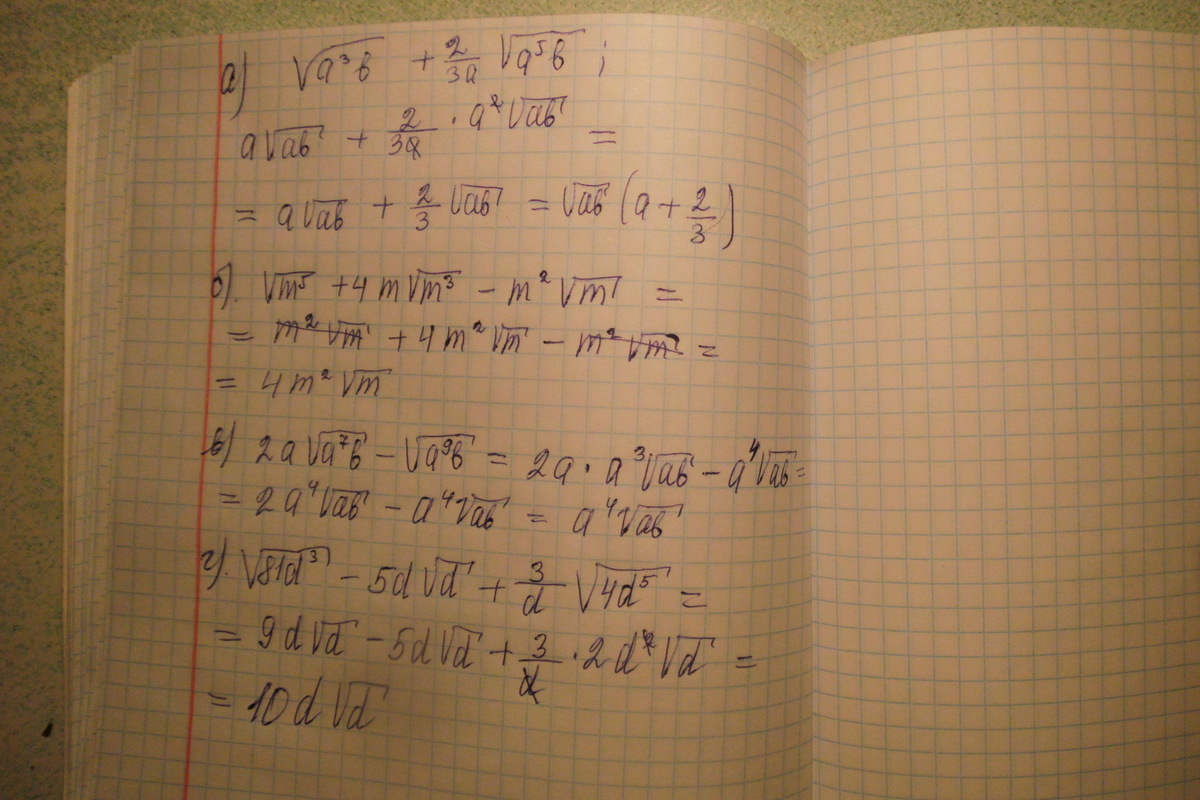 а) √a³b + 2/3a √a⁵b ;
a√ab + 2/3a · a²√ab =
= a√ab + 2/3 √ab = √ab (a + 2/3)
б). √m⁵ + 4m√m³ - m²√m =
= m²√m + 4m²√m - m²√m =
= 4m²√m
в) 2a√a⁷b - √a⁹b = 2a · a³√ab - a⁴√ab =
= 2a⁴√ab - a⁴√ab = a⁴√ab
г). √81d³ - 5d√d + 3/d √4d⁵ =
= 9d√d - 5d√d + 3/d · 2d²√d =
= 10d√d